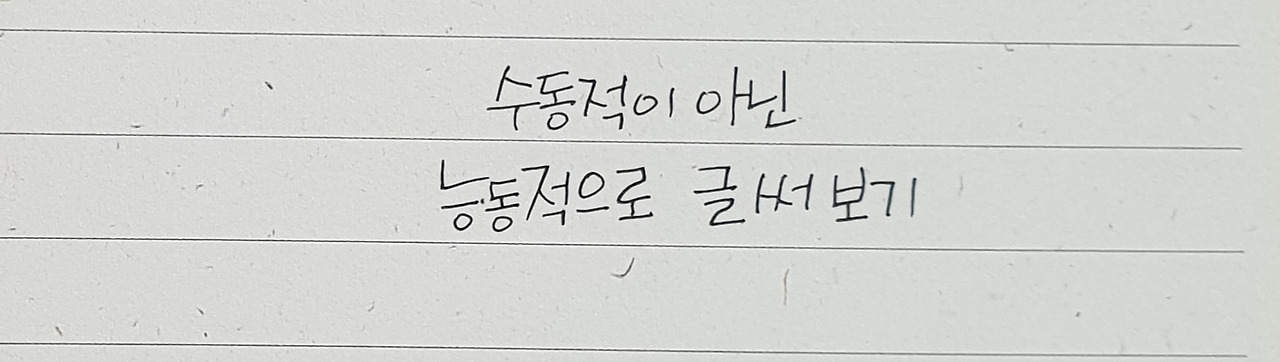 수동적이 아닌
능동적으로 글써보기